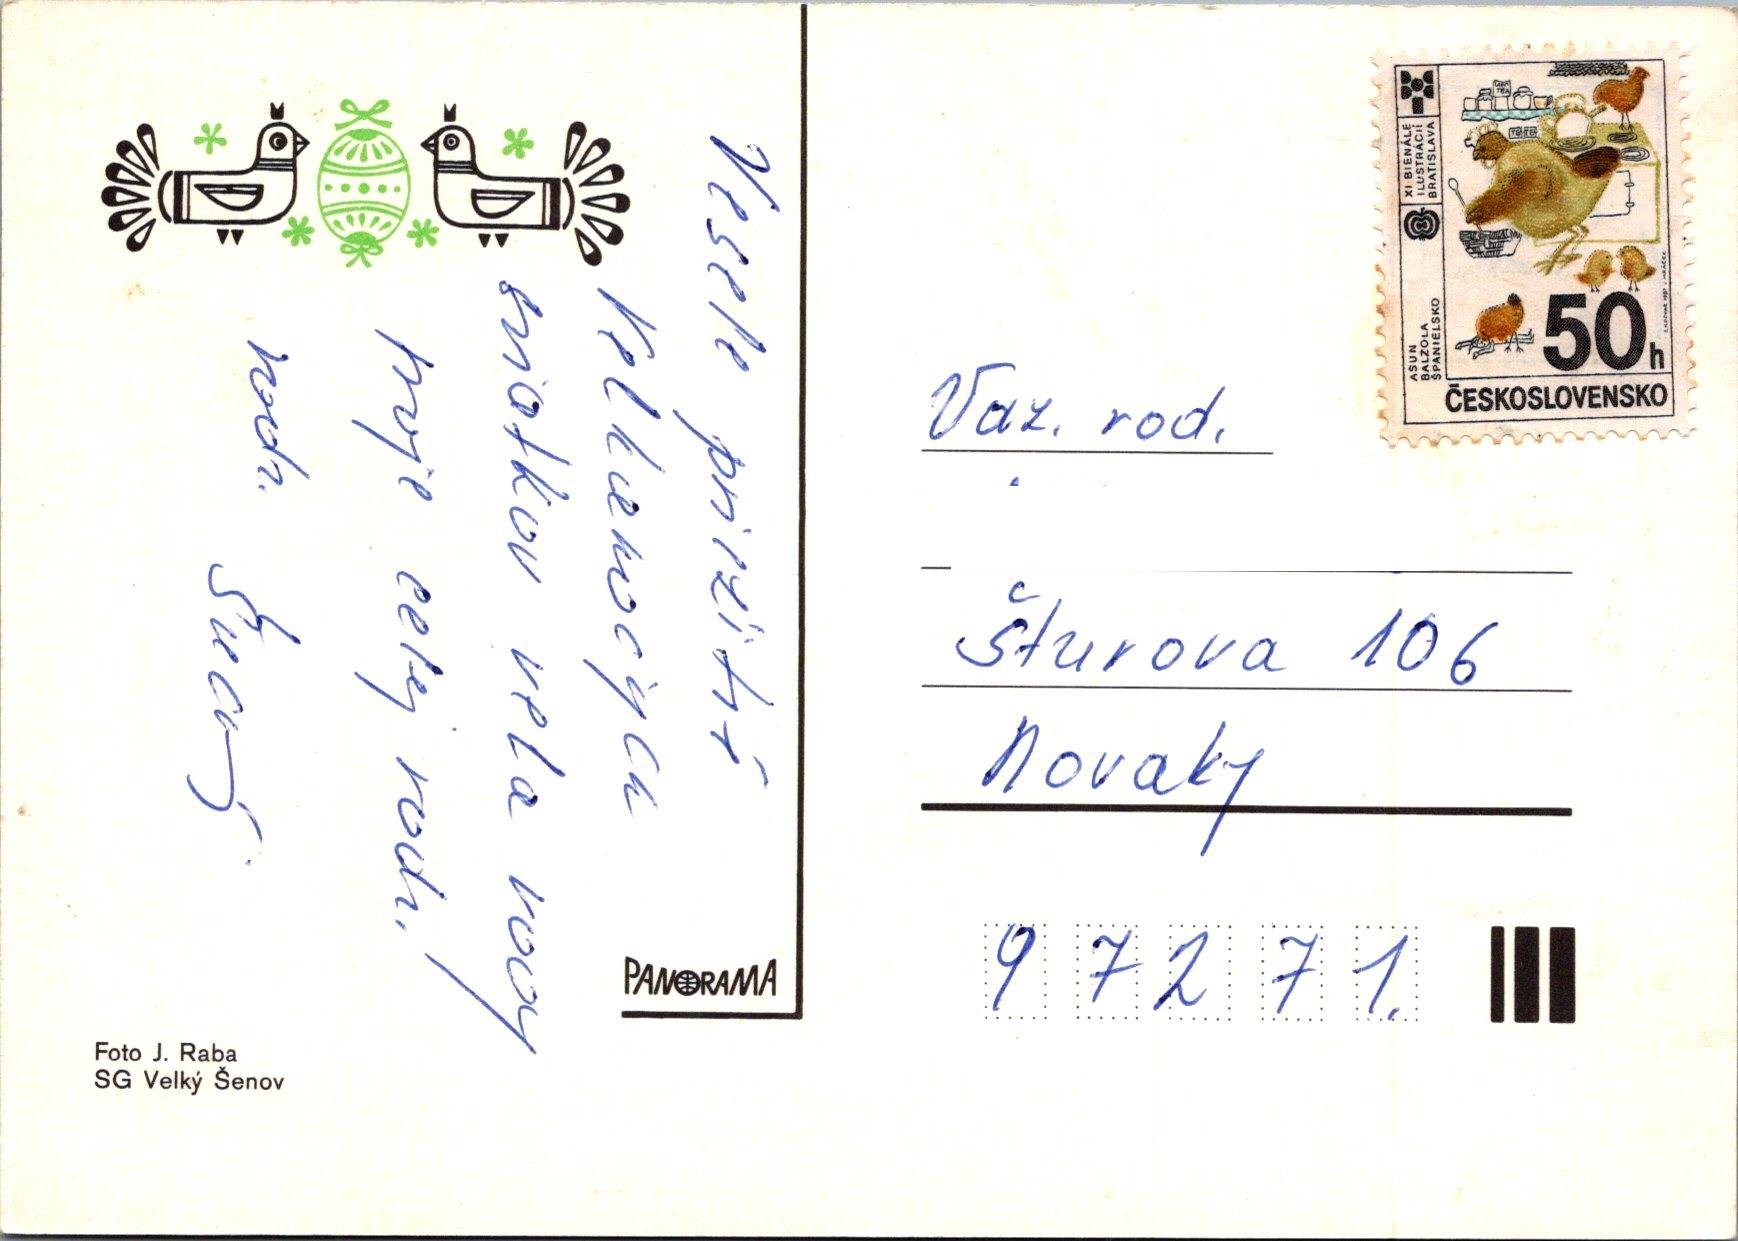 Veselé prizitie
Velkonocnych
sviatkov vela vody
praje celej rodi.
rodi.
Foto J. Raba
SG Velký Šenov
PANORAMA
XI BIENÁLE
ILUSTRÁCIÍ
BRATISLAVA
ASUN
BALZOLA
ŠPANIELSKO
50h
ČESKOSLOVENSKO
Vaz. rod.
Šturova 106
Novaky
972 71.